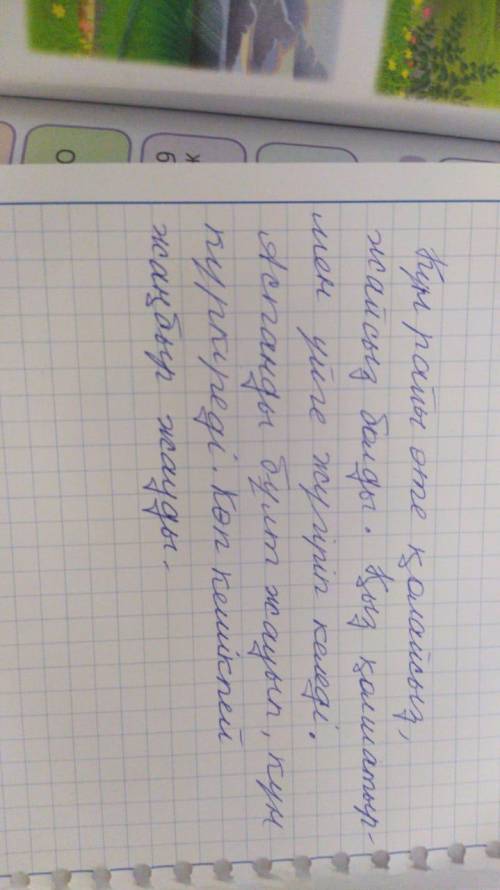 Күн райы өте қолайсыз,
жайсыз болды. Қыз қолшатыр-
мен үйге жүгіріп келеді.
Аспанды бұлт жауып, күн
күркіреді. Көп кешікпей
жаңбыр жауды.